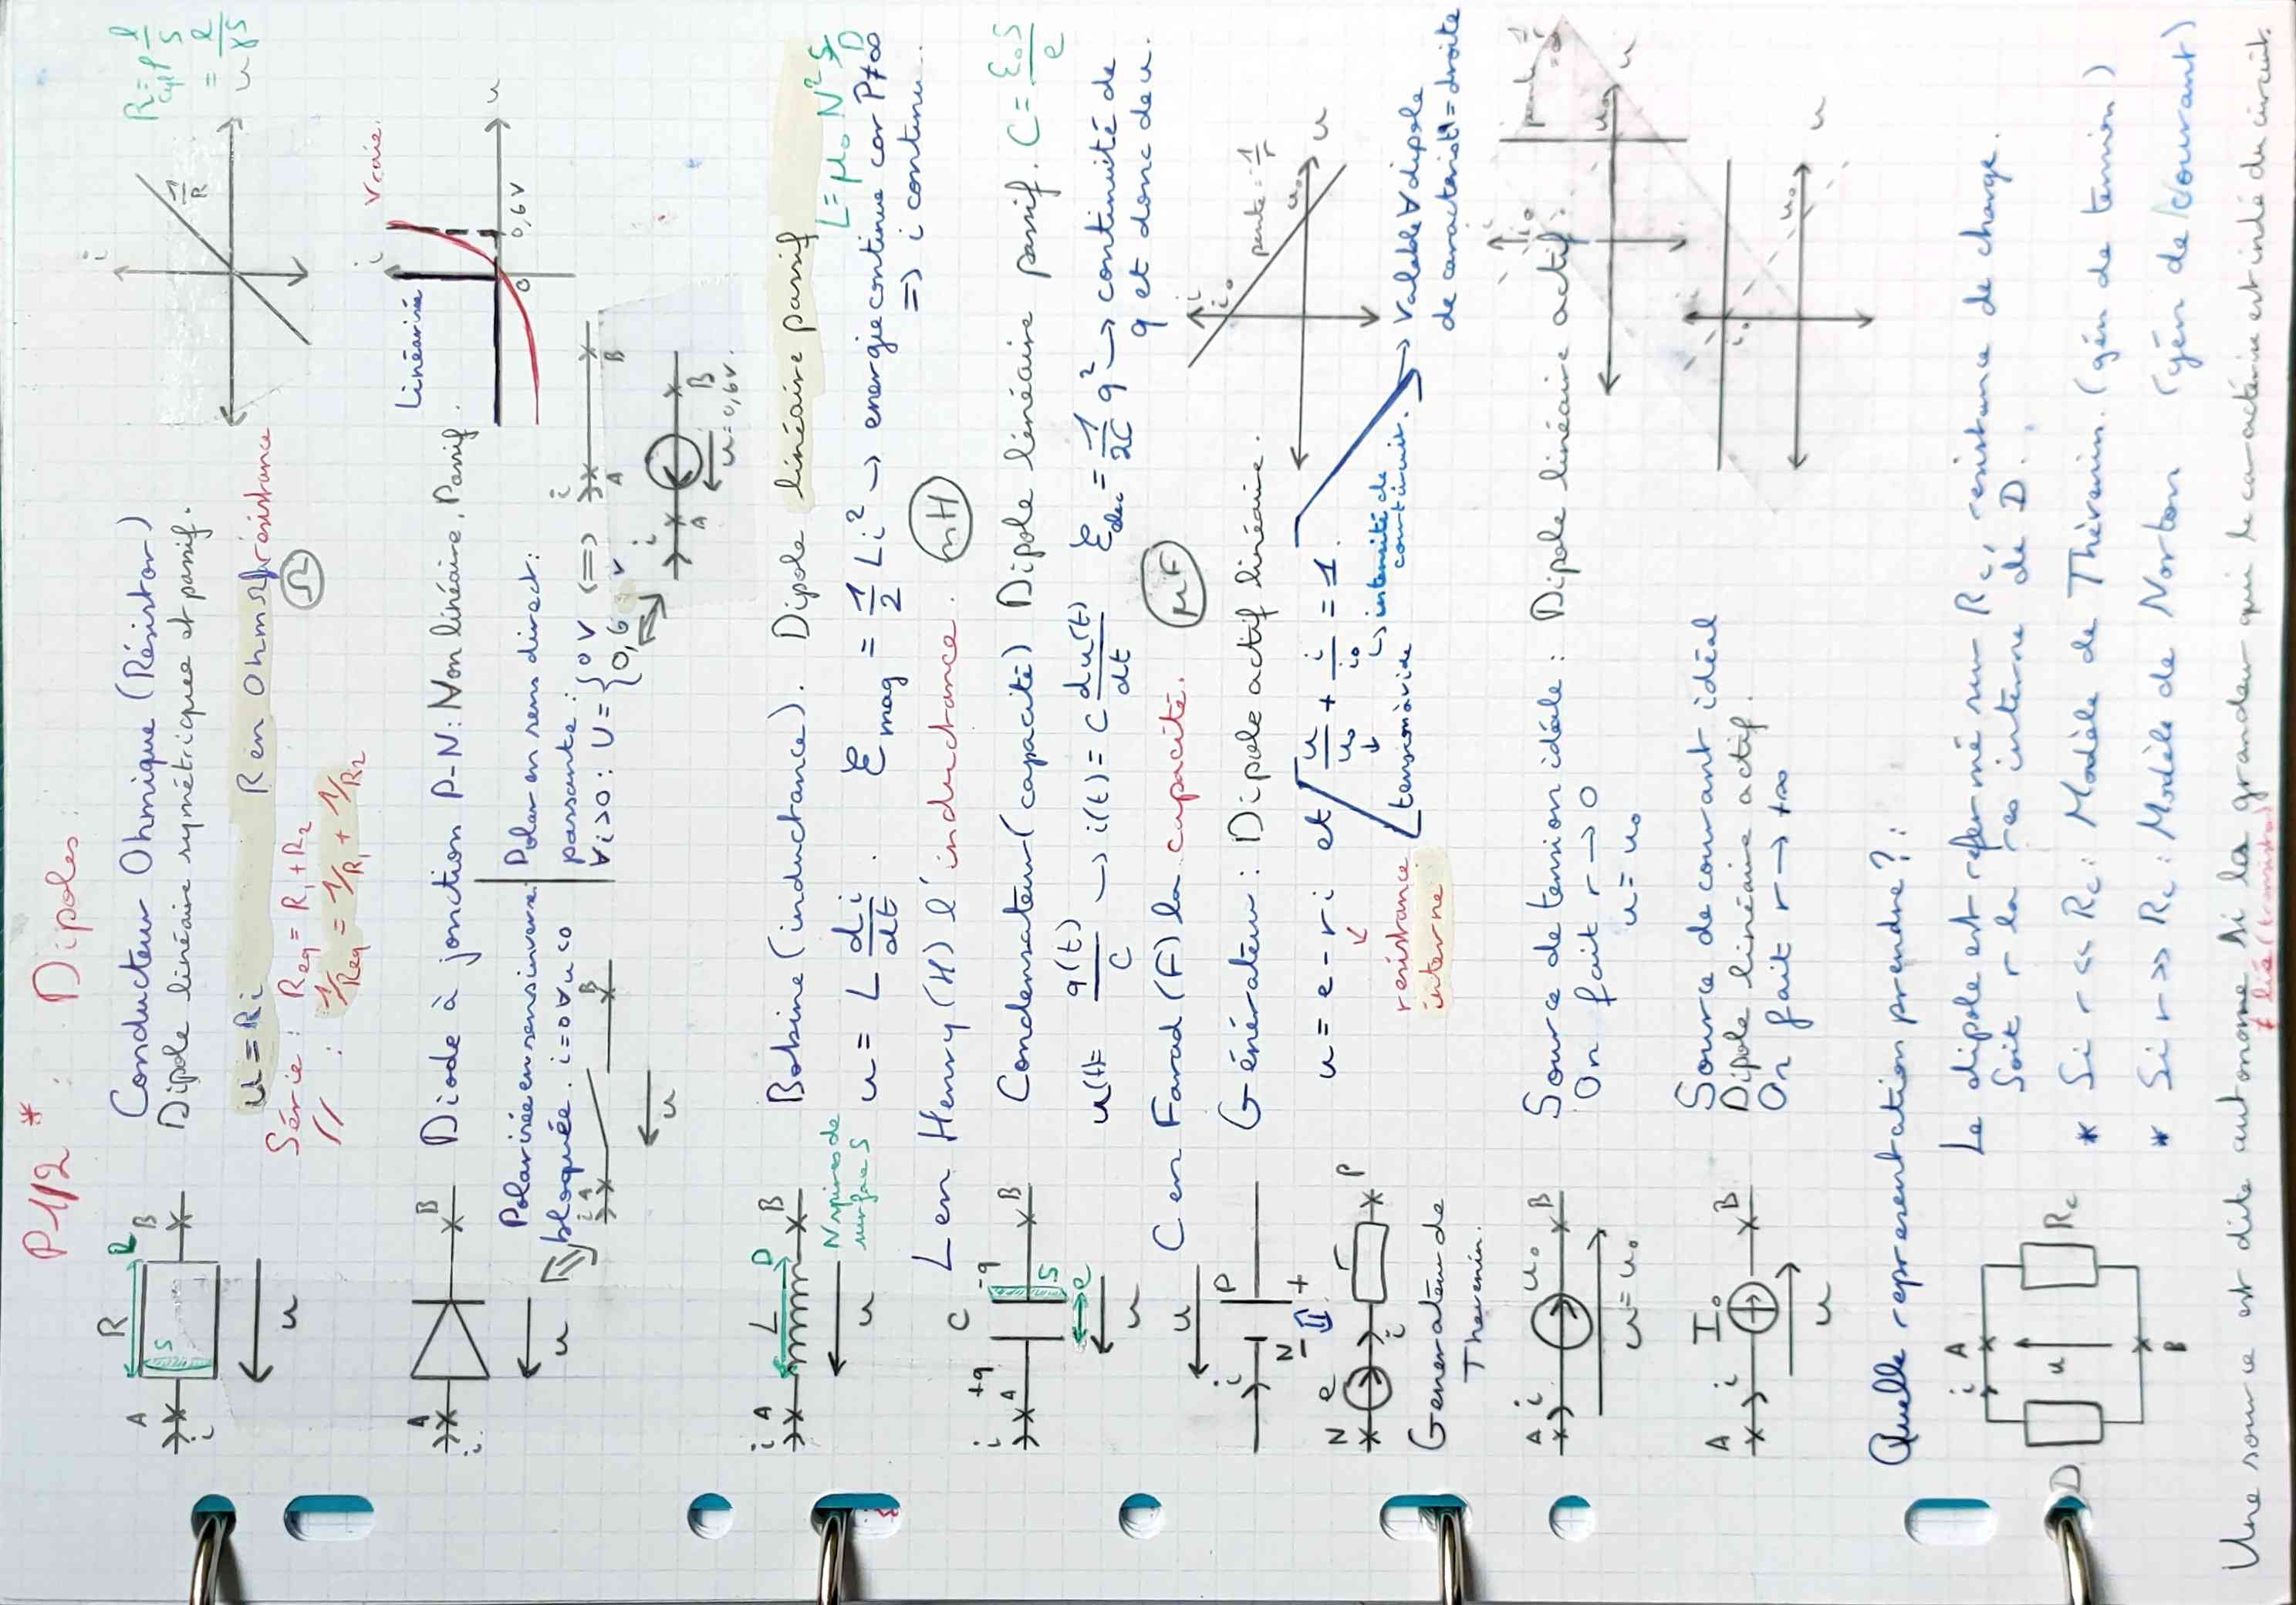 P1/2 * : Dipoles :
Conducteur Ohmique (Résistor)
Dipole linéaire symétrique et passif.
u = Ri   R en Ohm Ω résistance
Ω
Série : Req = R1 + R2
// : 1/Req = 1/R1 + 1/R2
A i R l B S u
i u 1/R
R = ρ l/S
cyl
= l/γS
Diode à jonction P-N : Non linéaire, Passif.
Polarisée en sens inverse
bloquée. i=0 ∀ u ≤ 0
Polar en sens direct :
passante :
∀ i>0 : U = {0 V
{0,6 V
<=>
A i B u
i A B
u = 0,6V.
Linéarisée
vraie.
i u 0 0,6V
Bobine (inductance). Dipole linéaire passif
u = L di/dt. Ɛmag = 1/2 Li² → energie continue car P≠∞
=> i continu.
L = μ0 N² S/D
N spires de
surface S
i A L D B u
L en Henry (H) l'inductance. mH
Condensateur (capacité) Dipole linéaire passif. C = ε0S/e
u(t) = q(t)/C → i(t) = C du(t)/dt Ɛelec = 1/2C q² → continuité de
q et donc de u.
i A +q C -q B S e u
C en Farad (F) la capacité. μF
Générateur : Dipole actif linéaire.
u = e - ri et u/u0 + i/i0 = 1
résistance
interne
tension à vide
intensité de
court circuit.
Valable ∀ dipole
de caracterist = droite
pente = -1/r
i i0 u0 u
u i P N - +
N e i r P
Generateur de
Thevenin.
Source de tension idéale : Dipole linéaire actif.
On fait r → 0
u = u0
A i u0 B
u = u0
Source de courant idéal
Dipole linéaire actif.
On fait r → +∞
A i I0 B
u
Quelle representation prendre ? :
Le dipole est refermé sur Rc, resistance de charge.
Soit r la res interne de D.
* Si r << Rc : Modèle de Thévenin. (gén de tension)
* Si r >> Rc : Modèle de Norton (gén de courant)
D i A u B Rc
Une source est dite autonome si la grandeur qui la caractérise est indé du circuit.
≠ liée (transistor)